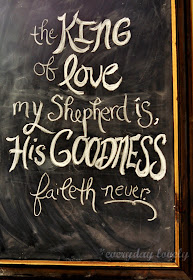 the KING
of love
my Shepherd is,
His GOODNESS
faileth never.
everyday lovely